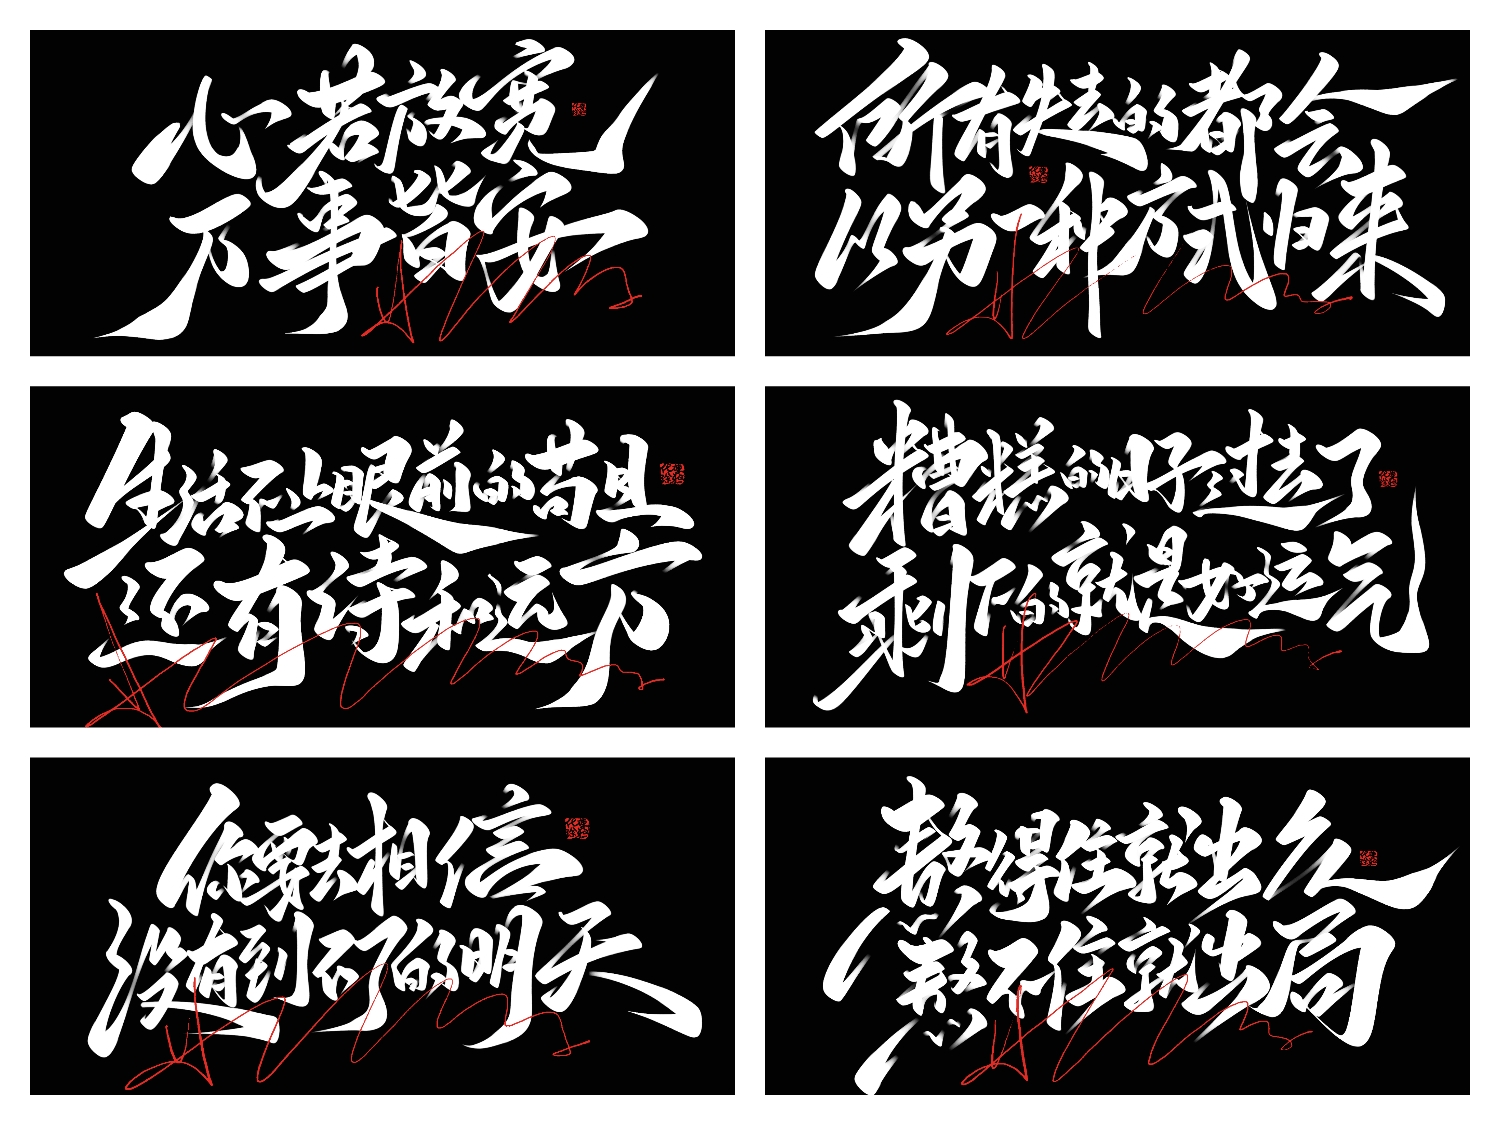 心若放宽
万事皆安
所有失去的都会
以另一种方式归来
生活不止眼前的苟且
还有诗和远方
糟糕的刚好过去了
剩下的就是好运气
你要去相信
没有到不了的明天
熬得住就出众
熬不住就出局